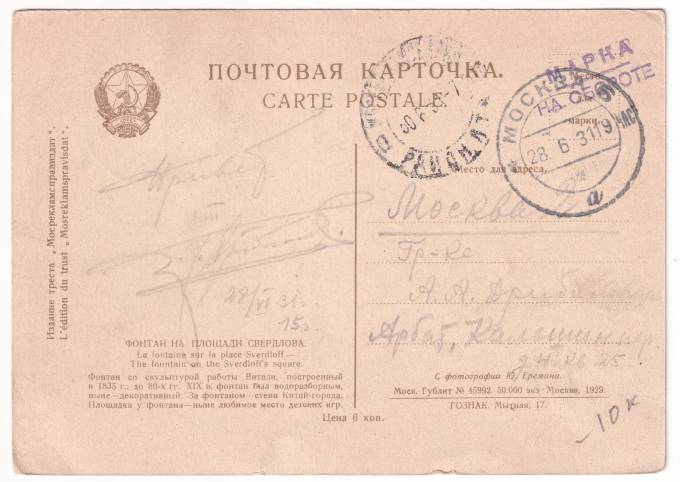 ПОЧТОВАЯ КАРТОЧКА.
CARTE POSTALE.
МАРКА
НА ОБОРОТЕ
Место
для
марки.
МОСКВА 6
28.6.31 19 ЧАС
а
Издание треста „Мосрекламсправиздат“.
L'édition du trust „Mosreklamspravisdat“.
Привет
28/VI 31 г.
15 г.
Место для адреса,
Москва
Гр-ке
А. А.
Арбат,
25
ФОНТАН НА ПЛОЩАДИ СВЕРДЛОВА.
La fontaine sur la place Sverdloff.—
The fountain on the Sverdloff's square.
Фонтан со скульптурой работы Витали, построенный
в 1835 г.; до 80-х гг. XIX в. фонтан был водоразборным,
ныне—декоративный. За фонтаном—стена Китай-города.
Площадка у фонтана—ныне любимое место детских игр.
Цена 6 коп.
С фотографии Ю. Еремина.
Моск. Гублит № 45992. 50.000 экз. Москва, 1929.
ГОЗНАК. Мытная, 17.
10 к